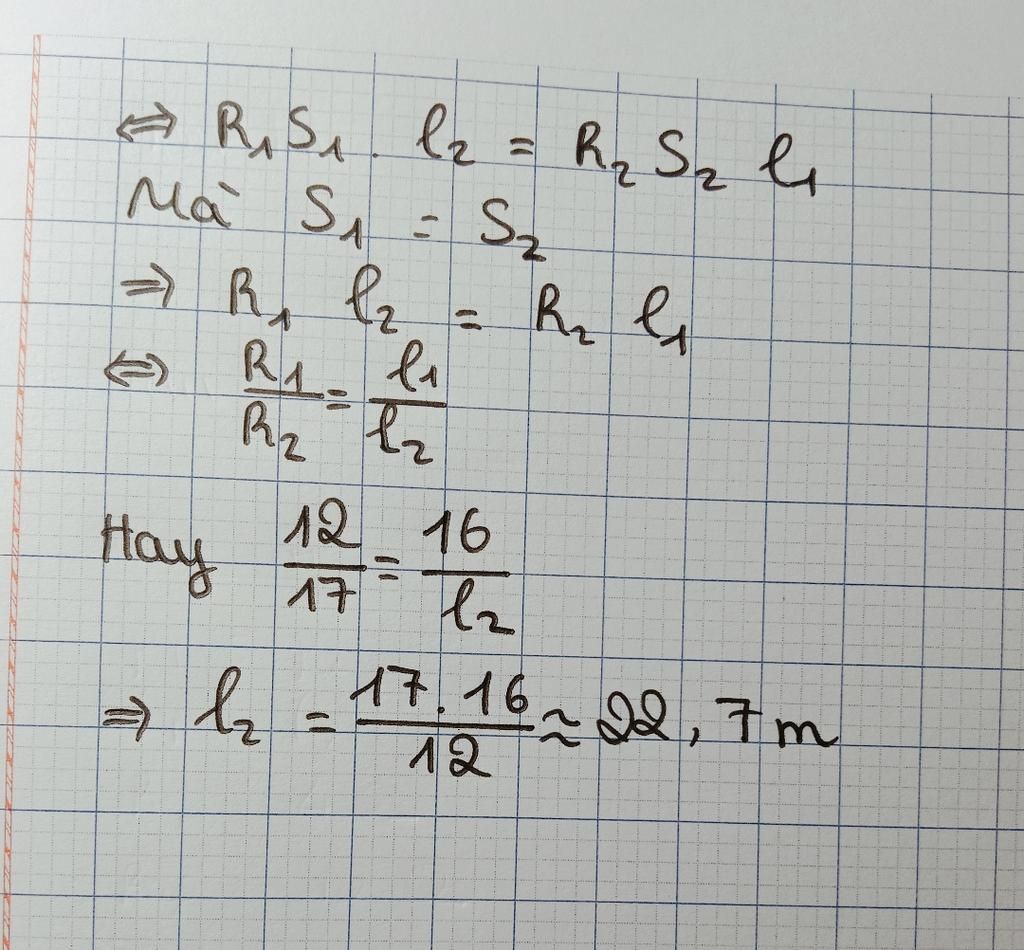 ⇔ R₁S₁. l₂ = R₂S₂ l₁
Mà S₁ = S₂
⇒ R₁ l₂ = R₂ l₁
⇔ R₁/R₂ = l₁/l₂
Hay 12/17 = 16/l₂
⇒ l₂ = 17.16/12 ≈ 22,7 m